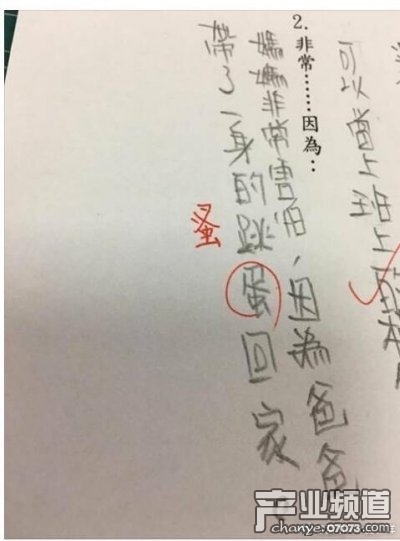 可以當上班上的
2. 非常……因為：
媽媽非常害怕，因為爸爸
帶了一身的跳蛋回家
蚤
产业频道
chanye.07073.com